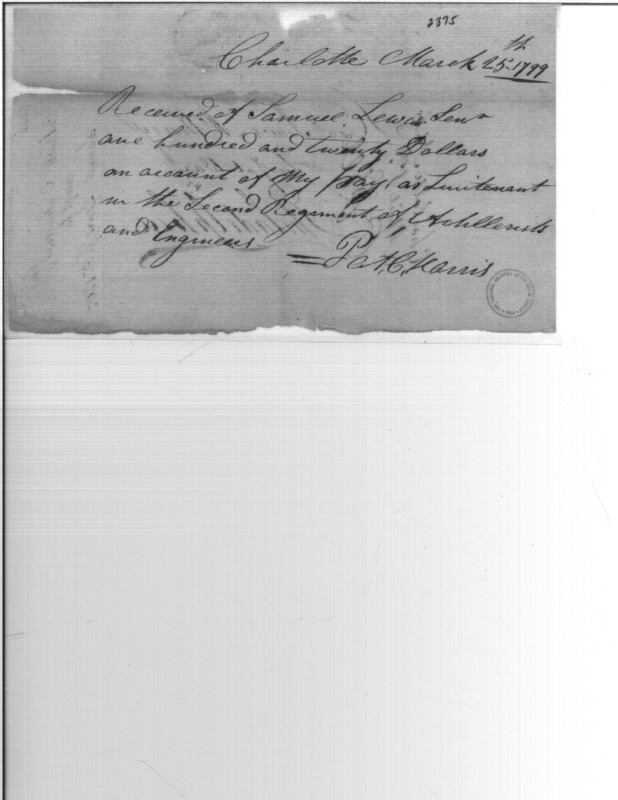 2375
Charlotte March 25th 1799
Received of Samuel Lewis Senr
one hundred and twenty Dollars
on account of My pay as Lieutenant
in the Second Regiment of Artillerists
and Engineers
Pat. C. Harris